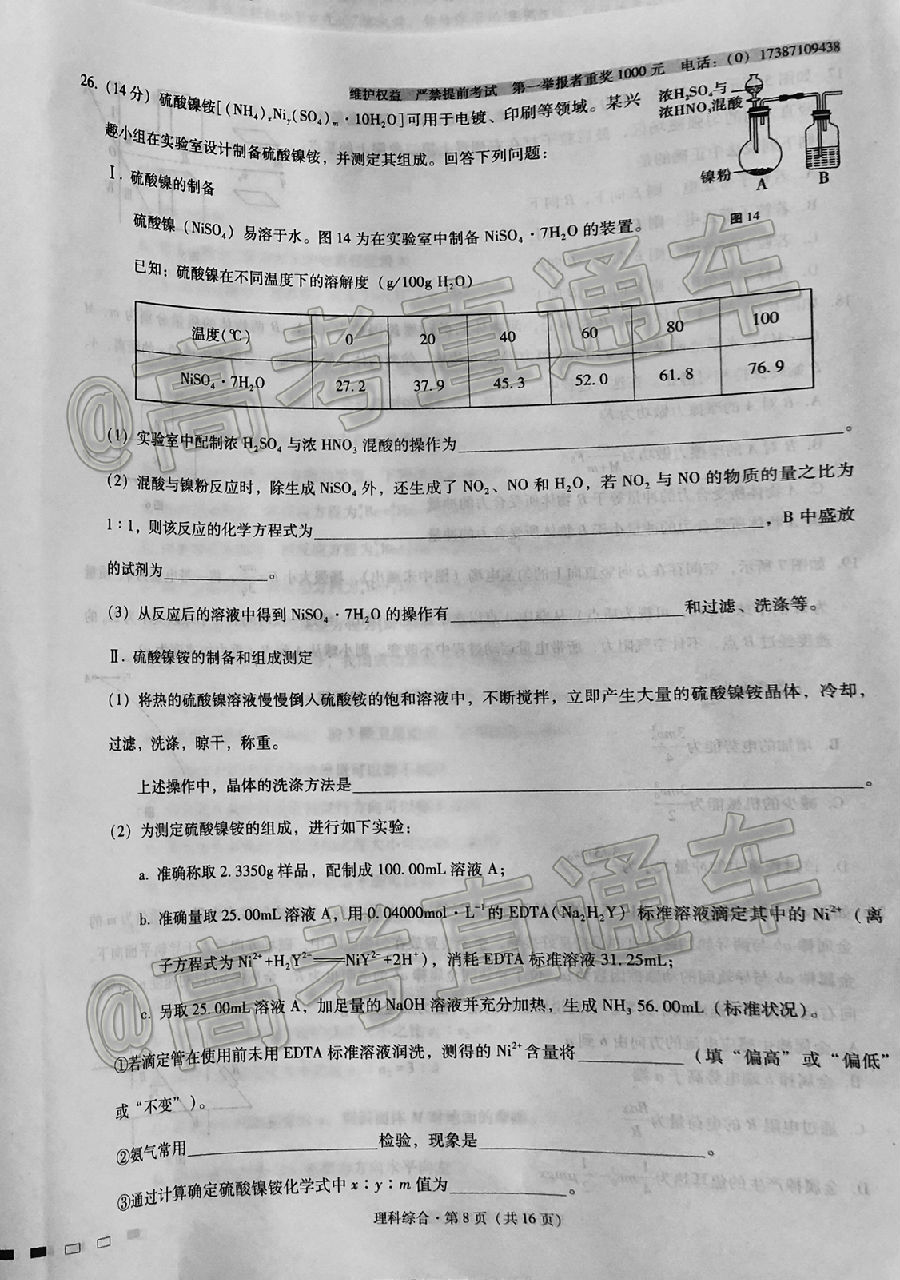 维护权益 严禁提前考试 第一举报者重奖1000元 电话：(0) 17387109438
26. (14分) 硫酸镍铵[(NH₄)ₓNiᵧ(SO₄)ₘ·10H₂O]可用于电镀、印刷等领域。某兴
趣小组在实验室设计制备硫酸镍铵，并测定其组成。回答下列问题：
浓H₂SO₄与
浓HNO₃混酸
镍粉
A
B
图14
Ⅰ. 硫酸镍的制备
硫酸镍（NiSO₄）易溶于水。图14为在实验室中制备NiSO₄·7H₂O的装置。
已知：硫酸镍在不同温度下的溶解度（g/100g H₂O）
温度(℃) 0 20 40 60 80 100
NiSO₄·7H₂O 27.2 37.9 45.3 52.0 61.8 76.9
(1) 实验室中配制浓H₂SO₄与浓HNO₃混酸的操作为____________。
(2) 混酸与镍粉反应时，除生成NiSO₄外，还生成了NO₂、NO和H₂O，若NO₂与NO的物质的量之比为
1∶1，则该反应的化学方程式为____________，B中盛放
的试剂为____________。
(3) 从反应后的溶液中得到NiSO₄·7H₂O的操作有____________和过滤、洗涤等。
Ⅱ. 硫酸镍铵的制备和组成测定
(1) 将热的硫酸镍溶液慢慢倒人硫酸铵的饱和溶液中，不断搅拌，立即产生大量的硫酸镍铵晶体，冷却，
过滤，洗涤，晾干，称重。
上述操作中，晶体的洗涤方法是____________。
(2) 为测定硫酸镍铵的组成，进行如下实验：
a. 准确称取2.3350g样品，配制成100.00mL溶液A；
b. 准确量取25.00mL溶液A，用0.04000mol·L⁻¹的EDTA(Na₂H₂Y) 标准溶液滴定其中的Ni²⁺（离
子方程式为Ni²⁺+H₂Y²⁻══NiY²⁻+2H⁺），消耗EDTA标准溶液31.25mL；
c. 另取25.00mL溶液A，加足量的NaOH溶液并充分加热，生成NH₃ 56.00mL（标准状况）。
①若滴定管在使用前未用EDTA标准溶液润洗，测得的Ni²⁺含量将____________（填“偏高”或“偏低”
或“不变”）。
②氨气常用____________检验，现象是____________。
③通过计算确定硫酸镍铵化学式中x∶y∶m值为____________。
理科综合·第8页（共16页）
@高考直通车
@高考直通车